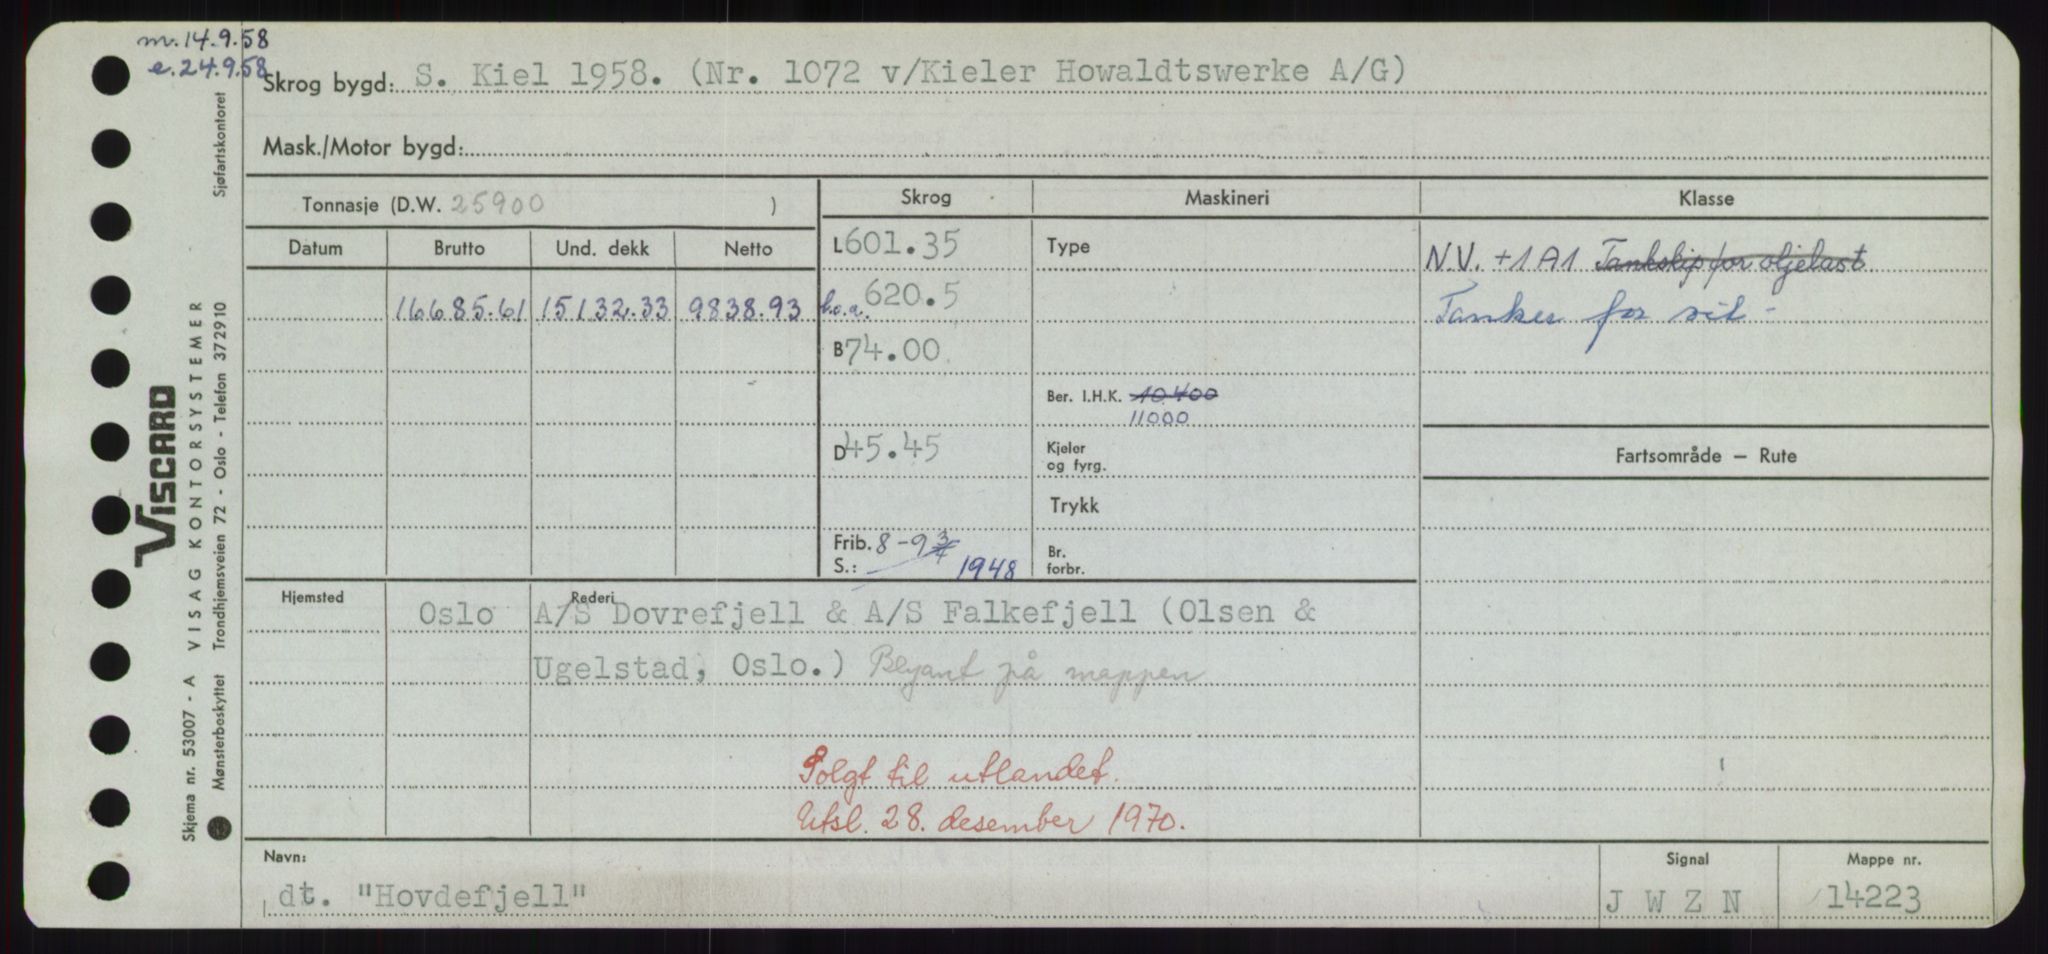 m. 14.9.58
e. 24.9.58
Skrog bygd: S. Kiel 1958. (Nr. 1072 v/Kieler Howaldtswerke A/G)
Mask./Motor bygd:
Tonnasje (D.W. 25900 )
Skrog Maskineri Klasse
Datum Brutto Und. dekk Netto
L 601.35 Type N.V. +1A1 Tankskip for oljelast
16685.61 15132.33 9838.93 l.o.a. 620.5 Tanker for
B 74.00
Ber. I.H.K. 10.400
11000
D 45.45 Kjeler
og fyrg.
Fartsområde – Rute
Trykk
Frib. 8-9 3/4 Br.
S.: 1948 forbr.
Hjemsted Rederi
Oslo A/S Dovrefjell & A/S Falkefjell (Olsen &
Ugelstad, Oslo.) på mappen
Solgt til utlandet.
Utsl. 28. desember 1970.
Navn: Signal Mappe nr.
dt. "Hovdefjell" J W Z N 14223
VISCARD
Skjema nr. 53007 - A VISAG KONTORSYSTEMER
Mønsterbeskyttet Trondhjemsveien 72 - Oslo - Telefon 372910 Sjøfartskontoret